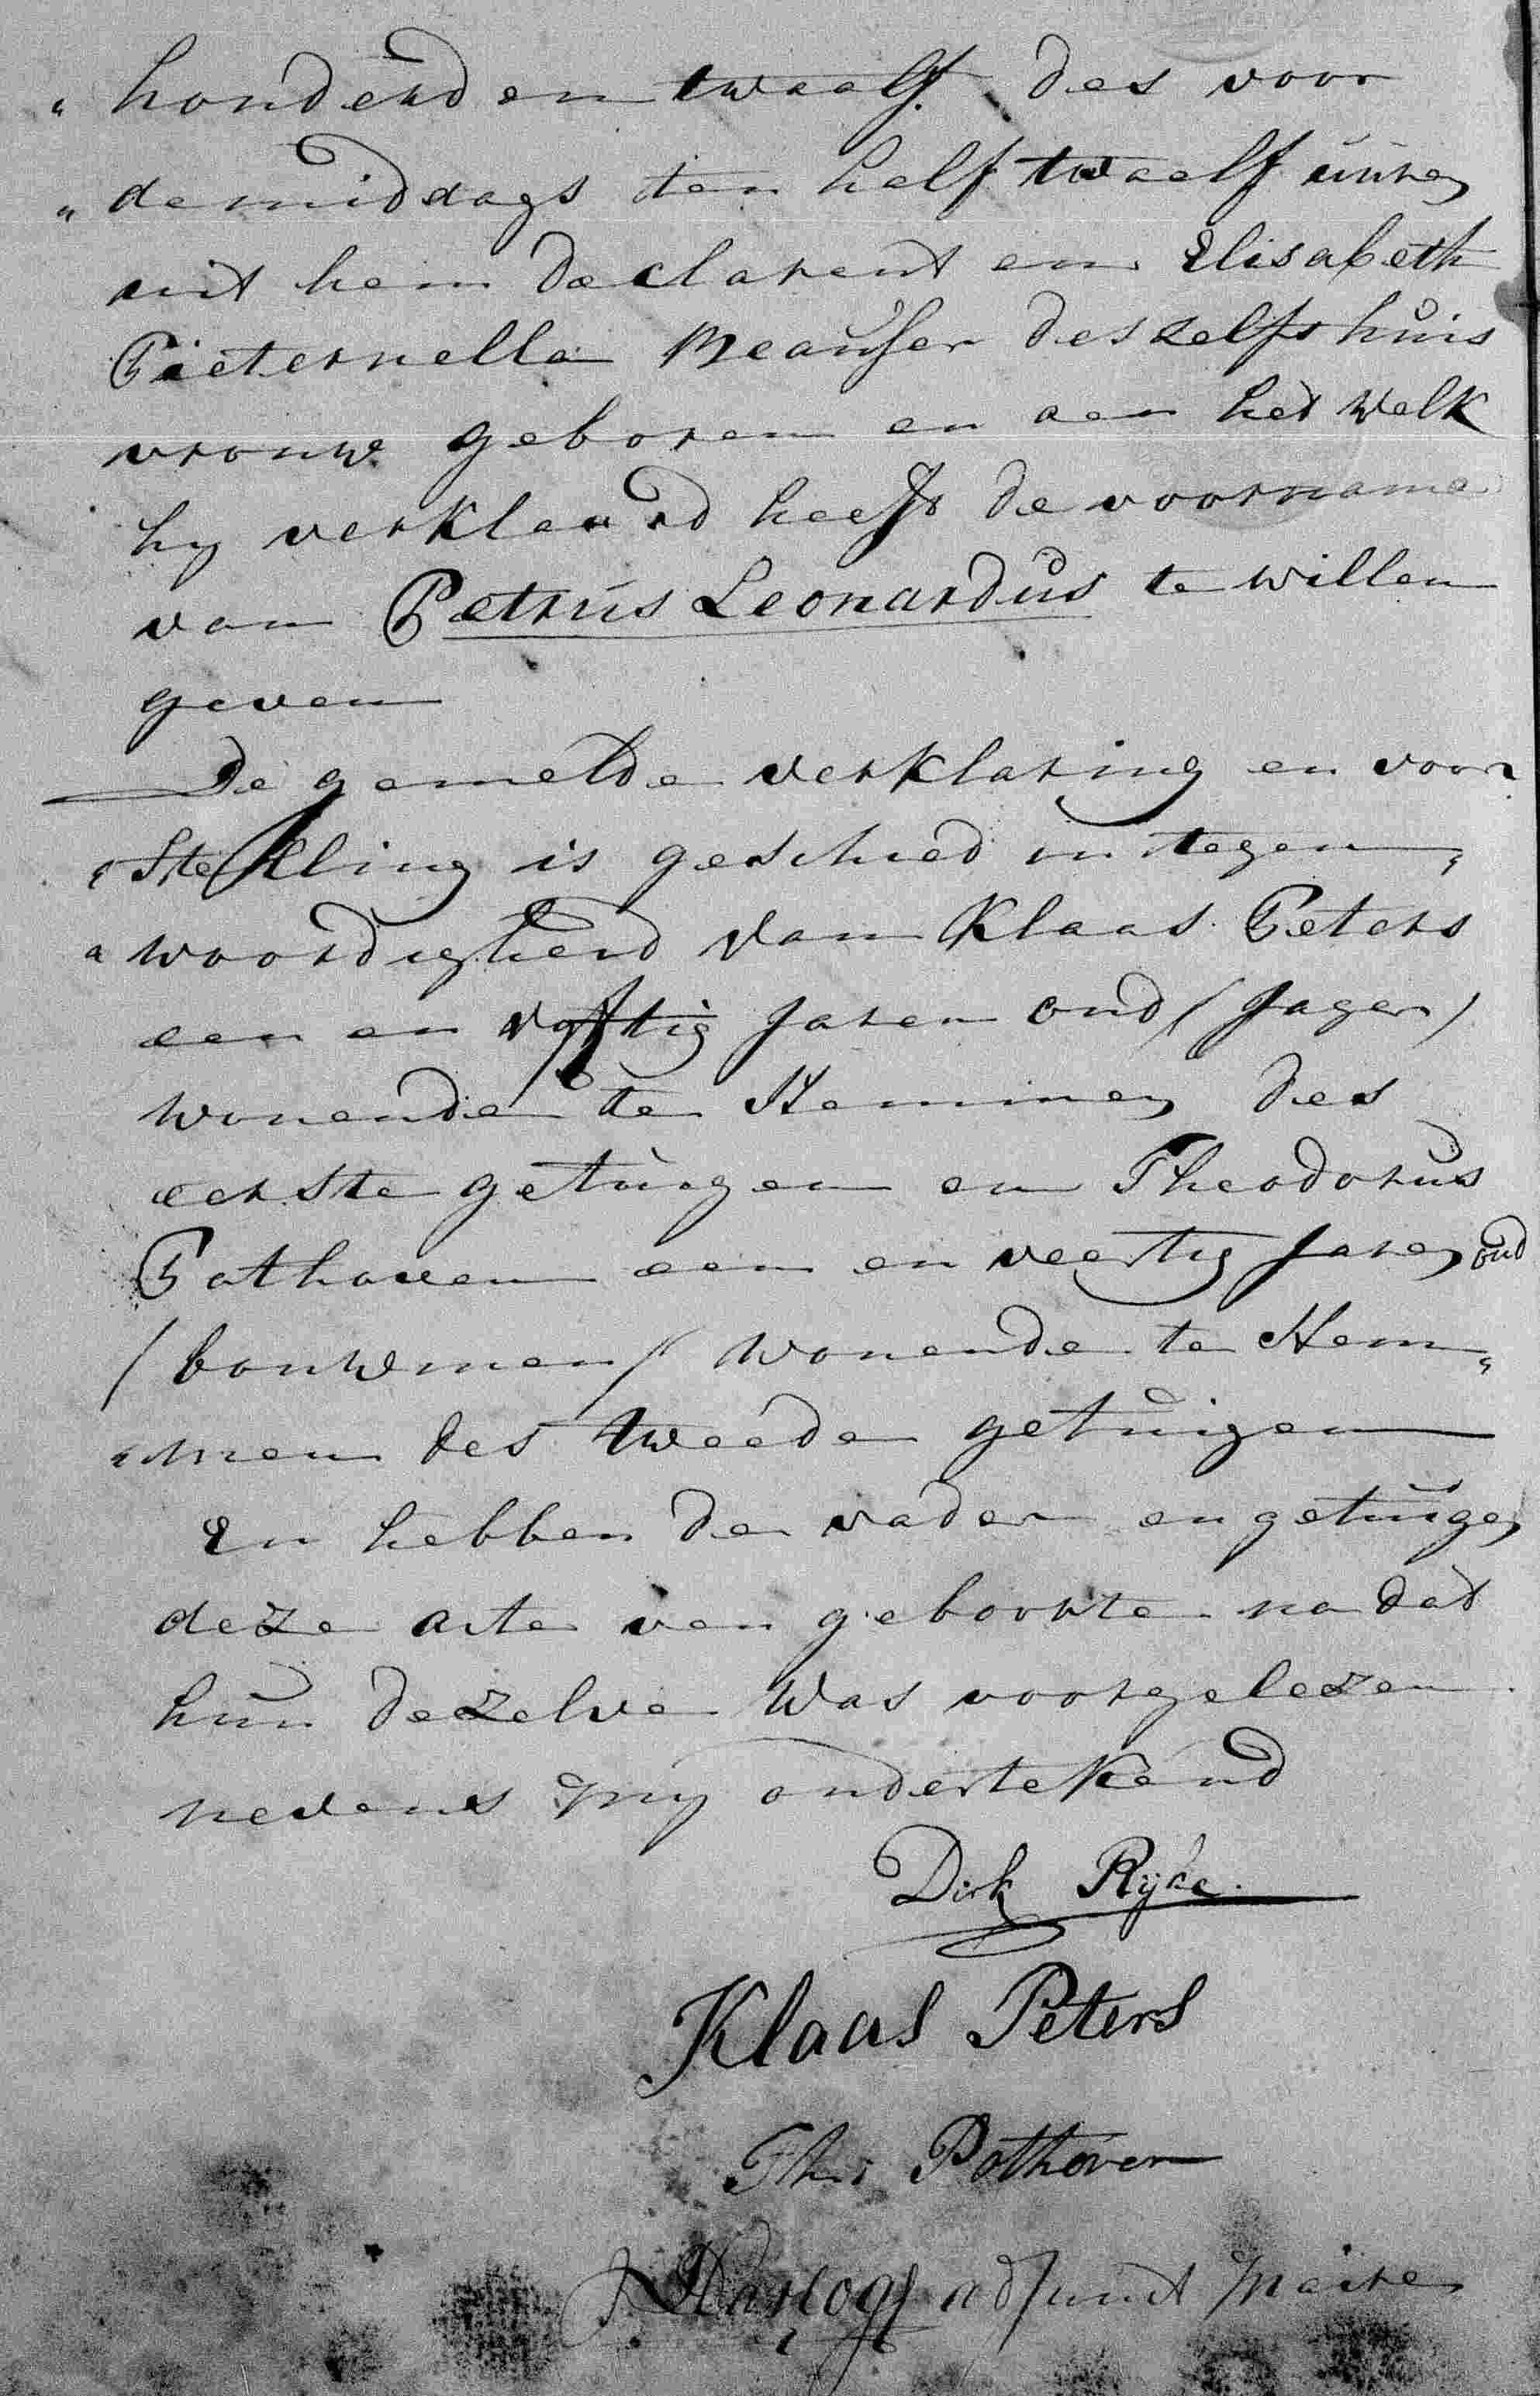 „ honderd en twaalf des voor
„ de middags ten half twaalf uuren
uit hem declarent en Elisabeth
Pieternella Meauser deszelfs huis
vrouwe geboren en aan het welk
hy verklaard heeft de voorname
van Petrus Leonardus te willen
geven
De gemelde verklaring en voor
„ stelling is geschied in tegen„
„ woordigheid van Klaas Peters
een en vyftig Jaren oud / Jager /
wonende te Hemmen des
eerste getuigen en Theodorus
Pothoven een en veertig Jaren oud
/ bouwman / wonende te Hem„
„ men des tweede getuigen
En hebben de vader en getuigen
deze acte van geboorte na dat
hun dezelve was voorgelezen
nevens my ondertekend
Dirk Ryke.
Klaas Peters
Ths Pothoven
Hartogs adjunct Maire